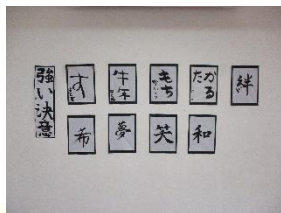 強い決意
す
牛年
もち
かるた
絆
希
夢
笑
和